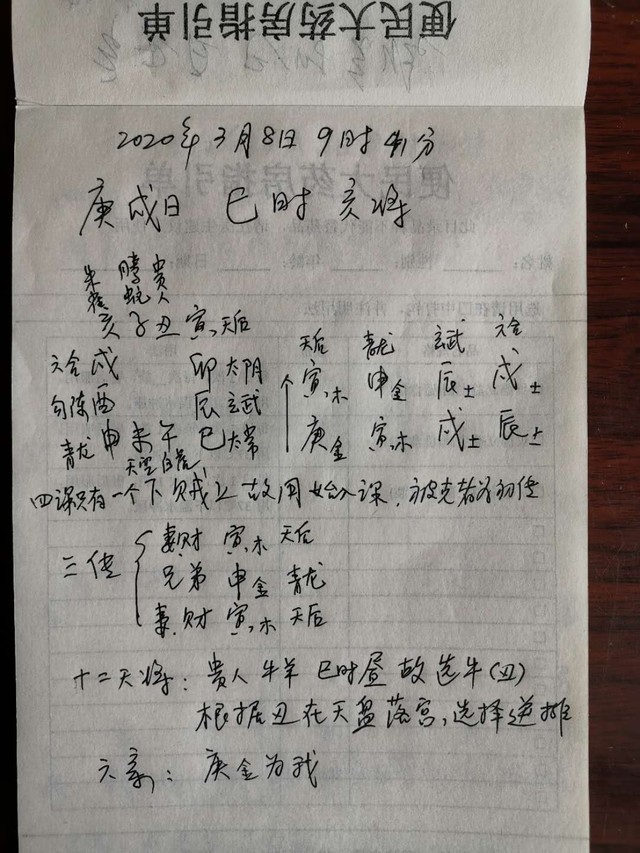 便民大药房指引单
2020年3月8日 9时41分
便民大药房指引单
庚戌日 巳时 亥将
朱雀 腾蛇 贵人
亥 子 丑 寅、天后
六合 戌 卯 太阴
勾陈 酉 辰 玄武
青龙 申 未 午 巳 太常
天空 白虎
天后 青龙 玄武 六合
寅、木 申金 辰土 戌土
庚金 寅、木 戌土 辰土
四课只有一个下贼上 故用始入课，被克者为初传
三传
妻财 寅、木 天后
兄弟 申金 青龙
妻财 寅、木 天后
十二天将：贵人 牛羊 巳时昼 故选牛(丑)
根据丑在天盘落宫，选择逆排
六亲：庚金为我